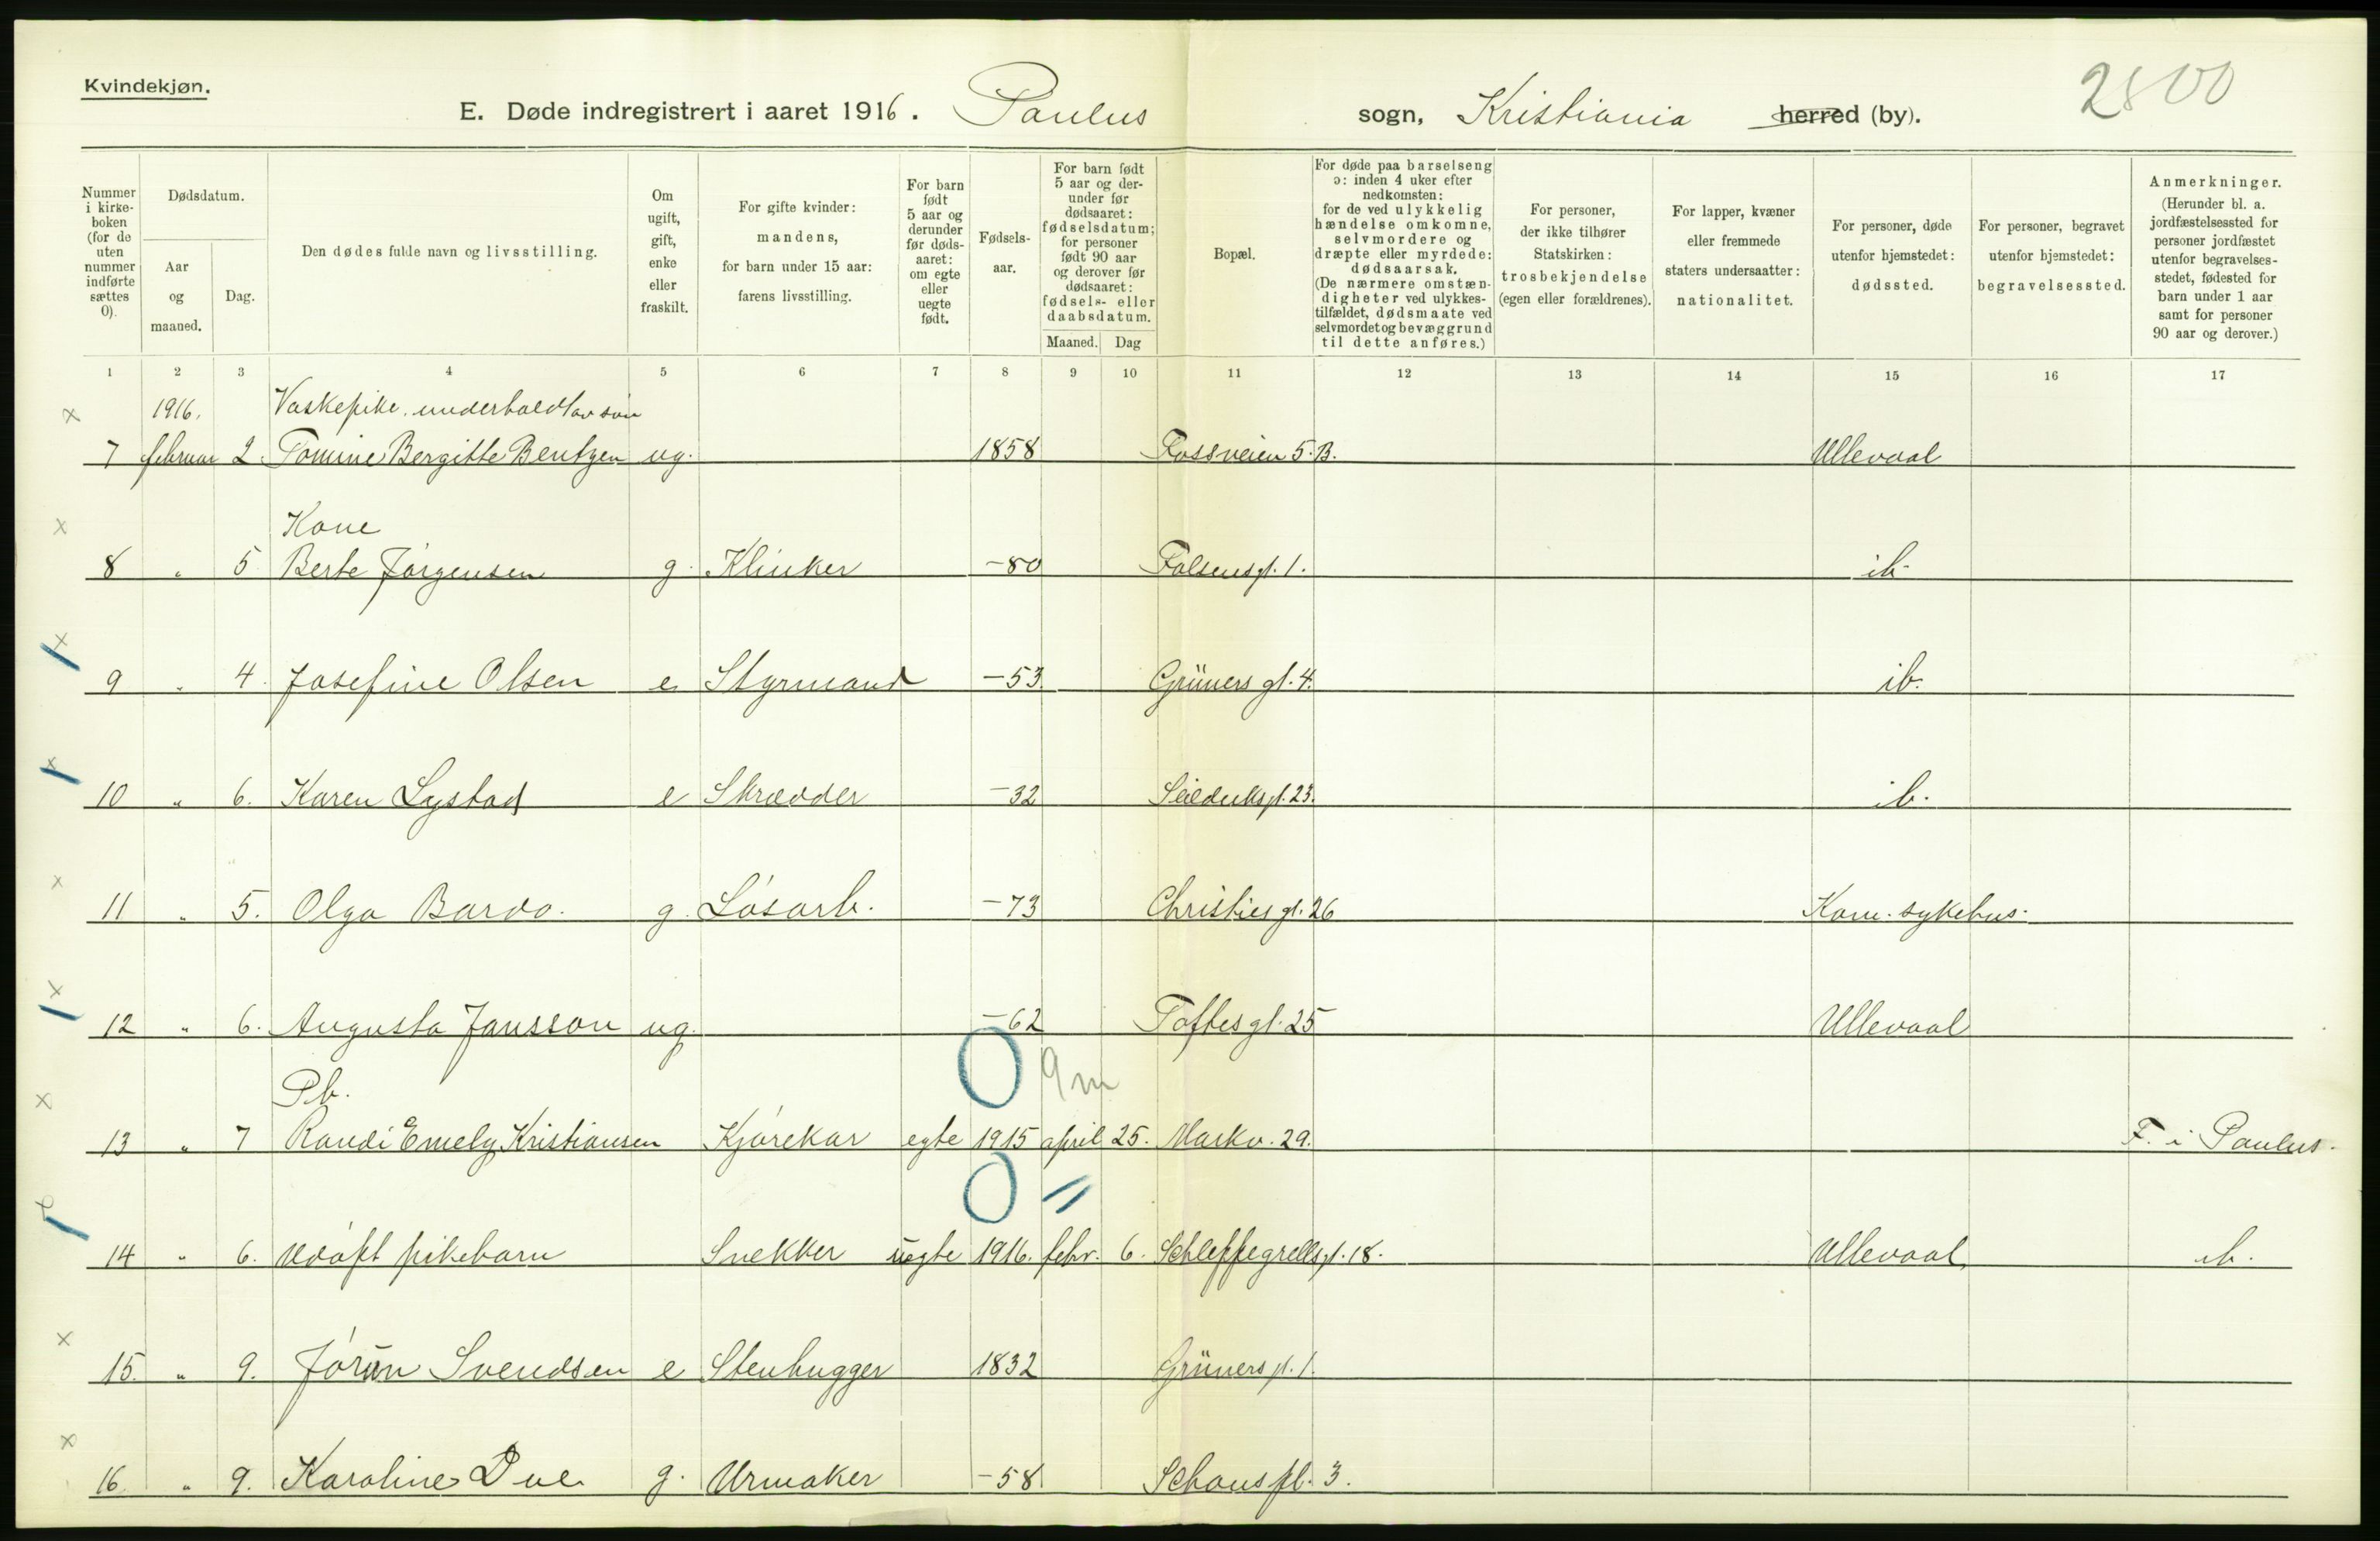 Kvindekjøn.
2800
E. Døde indregistrert i aaret 1916. Paulus sogn, Kristiania herred (by).
Nummer i kirkeboken (for de uten nummer indførte sættes 0).
Dødsdatum.
Aar og maaned.
Dag.
Den dødes fulde navn og livsstilling.
Om ugift, gift, enke eller fraskilt.
For gifte kvinder: mandens, for barn under 15 aar: farens livsstilling.
For barn født 5 aar og derunder før dødsaaret: om egte eller uegte født.
Fødselsaar.
For barn født 5 aar og derunder før dødsaaret: fødselsdatum; for personer født 90 aar og derover før dødsaaret: fødsels- eller daabsdatum.
Maaned. Dag
Bopæl.
For døde paa barselseng ɔ: inden 4 uker efter nedkomsten: for de ved ulykkelig hændelse omkomne, selvmordere og dræpte eller myrdede: dødsaarsak. (De nærmere omstændigheter ved ulykkestilfældet, dødsmaate ved selvmordet og bevæggrund til dette anføres.)
For personer, der ikke tilhører Statskirken: trosbekjendelse (egen eller forældrenes).
For lapper, kvæner eller fremmede staters undersaatter: nationalitet.
For personer, døde utenfor hjemstedet: dødssted.
For personer, begravet utenfor hjemstedet: begravelsessted.
Anmerkninger. (Herunder bl. a. jordfæstelsessted for personer jordfæstet utenfor begravelsesstedet, fødested for barn under 1 aar samt for personer 90 aar og derover.)
1 2 3 4 5 6 7 8 9 10 11 12 13 14 15 16 17
x 1916. Vaskepike. underholdt av søn
7 februar 2 Tomine Bergitte Bentzen ug. 1858 Fossveien 5.B. Ullevaal
x Kone
8 " 5 Berte Jørgensen g. Klinker -80 Falsensgt. 1. ib.
x
9 " 4. Josefine Olsen e Styrmand -53. Grüners gt. 4. ib.
x
10 " 6. Karen Lystad e Skrædder -32 Seilduksgt. 23. ib.
x
11 " 5. Olga Bardo. g. Løsarb. -73 Christies gt. 26 Kom. sykehus.
x
12 " 6. Augusta Jansson ug. -62 Toftes gt. 25 Ullevaal
x Pb. 0 9m
13 " 7 Randi Emely Kristiansen Kjørekar egte 1915 april 25. Markv. 29. F. i Paulus.
x 0 "
14 " 6. Udøpt pikebarn Snekker uegte 1916. febr. 6. Schleppegrellsgt. 18. Ullevaal ib.
x
15. " 9. Jørun Svendsen e Stenhugger 1832 Grüners gt. 1.
x
16. " 9. Karoline Due g. Urmaker -58 Schous pl. 3.